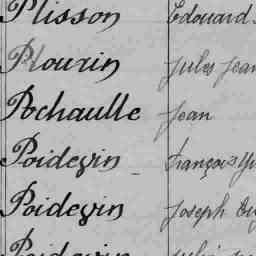 Plisson Edouard
Plourin Jules Jean
Pochaulle Jean
Poidevin François
Poidevin Joseph
Poidevin Julien